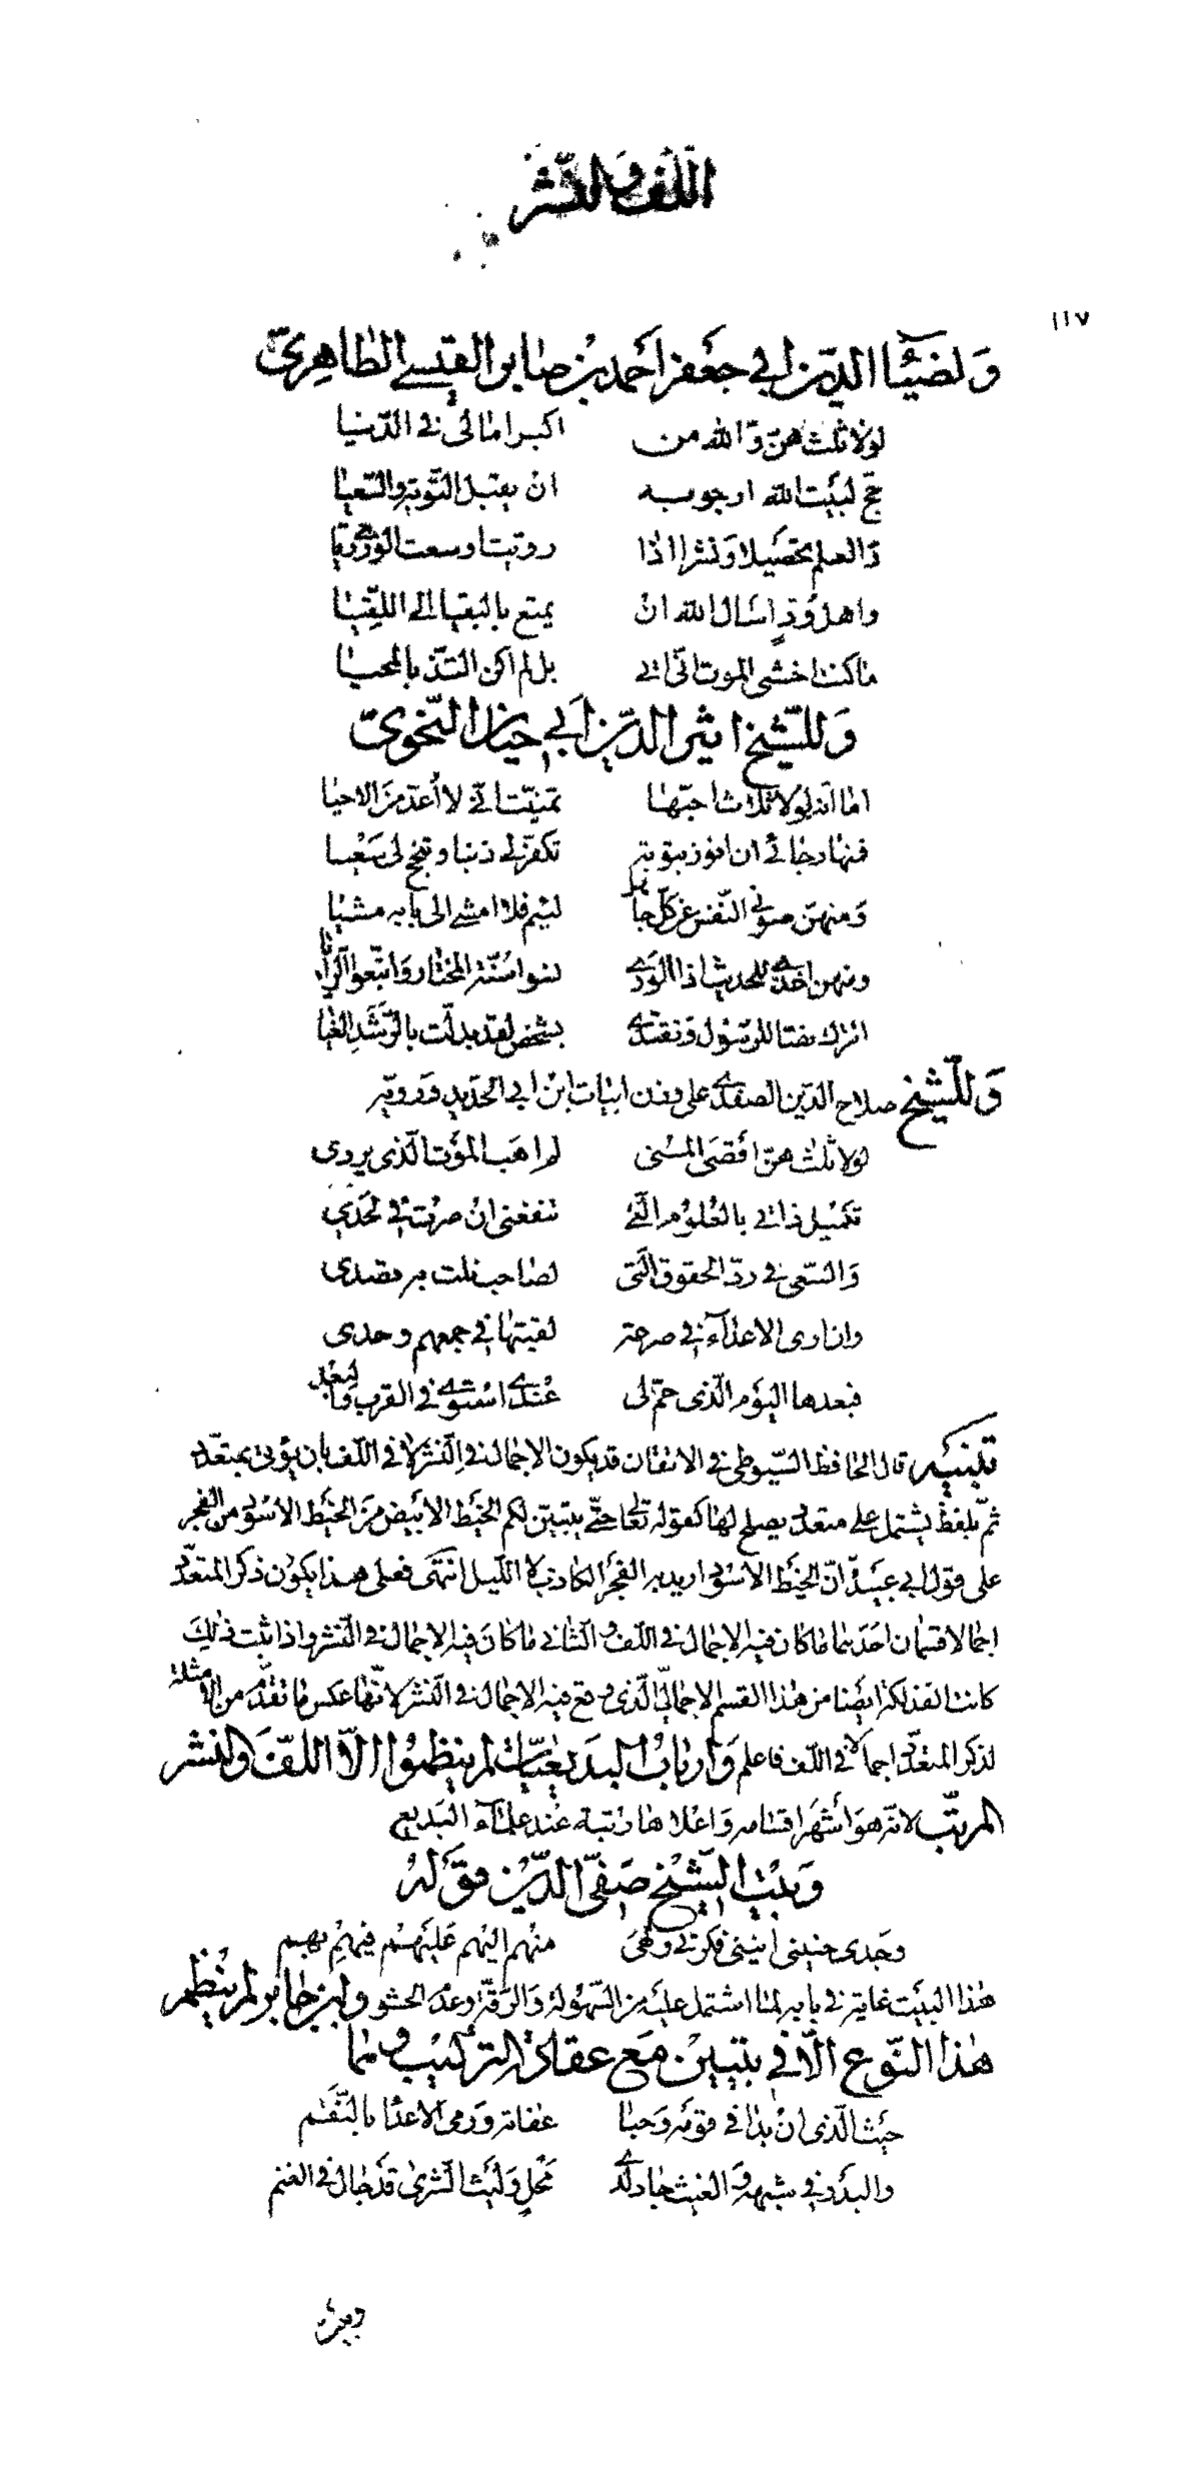 اللف والنشر
١١٧
وَلضيَاء الدّين ابي جعفر احمد بن صابر القيسي الظاهريّ
لولا ثلث هنّ والله من اكبر امالى فى الدّنيا
حجّ لبَيت الله ارجو به ان يقبل التّوبة والسّعيا
وَالعلم تحصَيلا وَنشرا اذا رويت اوسعت الورى ريّا
واهل وُدّ اسَال الله ان يمتع بالبقيا الى اللّقيا
ما كنت اخشى الموت انّى اتى بل لم اكن التذّ بالمحيا
وَللشّيخ اثير الدّين ابي حيان النّحويّ
اما انه لولا ثلاث احبّها تمنّيت انّي لا أعدّ منَ الاحيا
فمنها رجائي ان افوز بتوبة تكفّر لي ذنبا وتنجح لي سَعْيا
وَمنهنّ صونى النّفس عن كلّ جاهل لئيم فلا امشي الى بابه مشيا
ومنهن اخذي للحديث اذا الورى نسوا سُنّة المختار وَاتّبعوا الرأيا
اترك نصّا للرسُول وَنقتدي بشخص لقد بدلت بالرّشد الغيّا
وَللشّيخ صلاح الدّين الصفدي على وزن ابيات ابن ابي الحديد ورويّه
لولا ثلث هنّ اقصَى المُنى لم اهَب المَوت الّذى يردى
تكميل ذاتي بالعُلوُم الّتي تنفعني ان صرت في لَحدي
وَالسّعى فى ردّ الحقوق الّتى لصاحب نلت به قصدى
وان ارى الاعدآء في صرعة لقيتها في جمعهم وحدى
فبعدها اليَوم الّذى حمّ لى عندي استوى في القرب والبُعد
تنبيه قال الحافظ السّيوطى فى الاتقان قد يكون الاجمال فى النّشر لا فى اللّف بان يؤتى بمتعدّد
ثمّ بلفظ يشتمل على متعدّد يصلح لهما كقوله تعالى حتّى يتبيّن لكم الخيَط الأبيَض منَ الخيَط الاسْود من الفجر
على قول ابي عبَيدة انّ الخيَط الاسود اريد به الفجر الكاذب لا الليل انتهى فعلى هذا يكون ذكر المتعدّد
اجمالا قسمان احَدهما ما كان فيه الاجمال فى اللّف والثّاني ما كانَ فيه الاجمال فى النّشر واذا ثبت ذلك
كانت الفذلكة ايضا من هذا القسم الاجماليّ الّذى وقع فيه الاجمال فى النّشر لانّها عكس ما تقدّم من الامثلة
لذكر المتعدّد اجمالا في اللّف فاعلم وَارباب البديعيّات لم ينظموا الّا اللّفّ وَالنشر
المرتّب لانّه هوَ أشهَر اقسامه وَاعلاها رتبة عند علمآء البَديع
وَبيت الشّيخ صَفيّ الدّين قوَله
وجَدى حنينى انينى فكرتي ولهى منهُم اليْهم عَليَهْم فيهُم بهم
هذا البيَت غاية فى بابه لما اشتمل عليَه من السّهُولة وَالرّقة وعدم الحشو وابن جابر لم ينظم
هذا النّوع الّا في بيتين مَع عقادة التركيب وهما
حيَث الّذى انْ بدا فى قومَه وَحبا عفاته وَرمى الاعدا بالنّقَم
والبدَر فى شبهه وَ الغيث جاد لذي مَحْلٍ وَلَيَث الشّرى قدَ جال فى الغنم